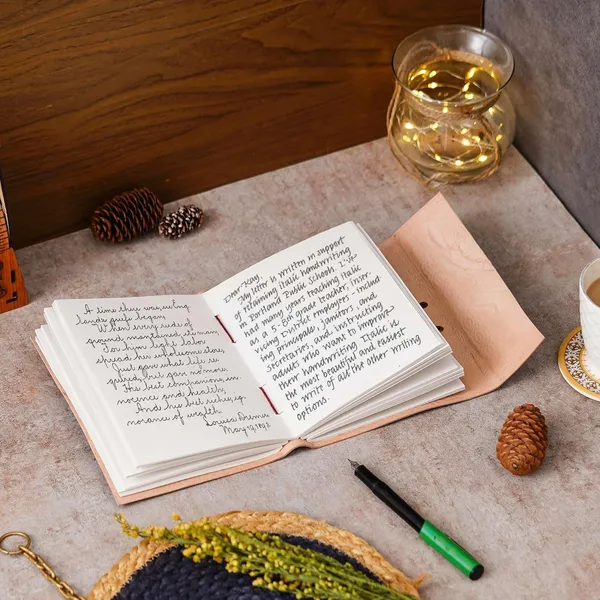 A time there was, ere Eng
lands griefs began
When every rod of
ground maintained its man
For him light labor
spread her wholesome store,
Just gave what life re
quired, but gave no more,
His best companions, in
nocence and health;
And his best riches, ig
norance of wealth.
Louisa Driscoe
May
Dear Kay,
My letter is written in support
of retaining italic handwriting
in Portland Public Schools. I've
had many years teaching italic
as a 5-8th grade teacher, inser-
vicing District employees, includ-
ing principals, janitors, and
secretaries, and instructing
adults who want to improve
their handwriting. Italic is
the most beautiful and easiest
to write of all the other writing
options.